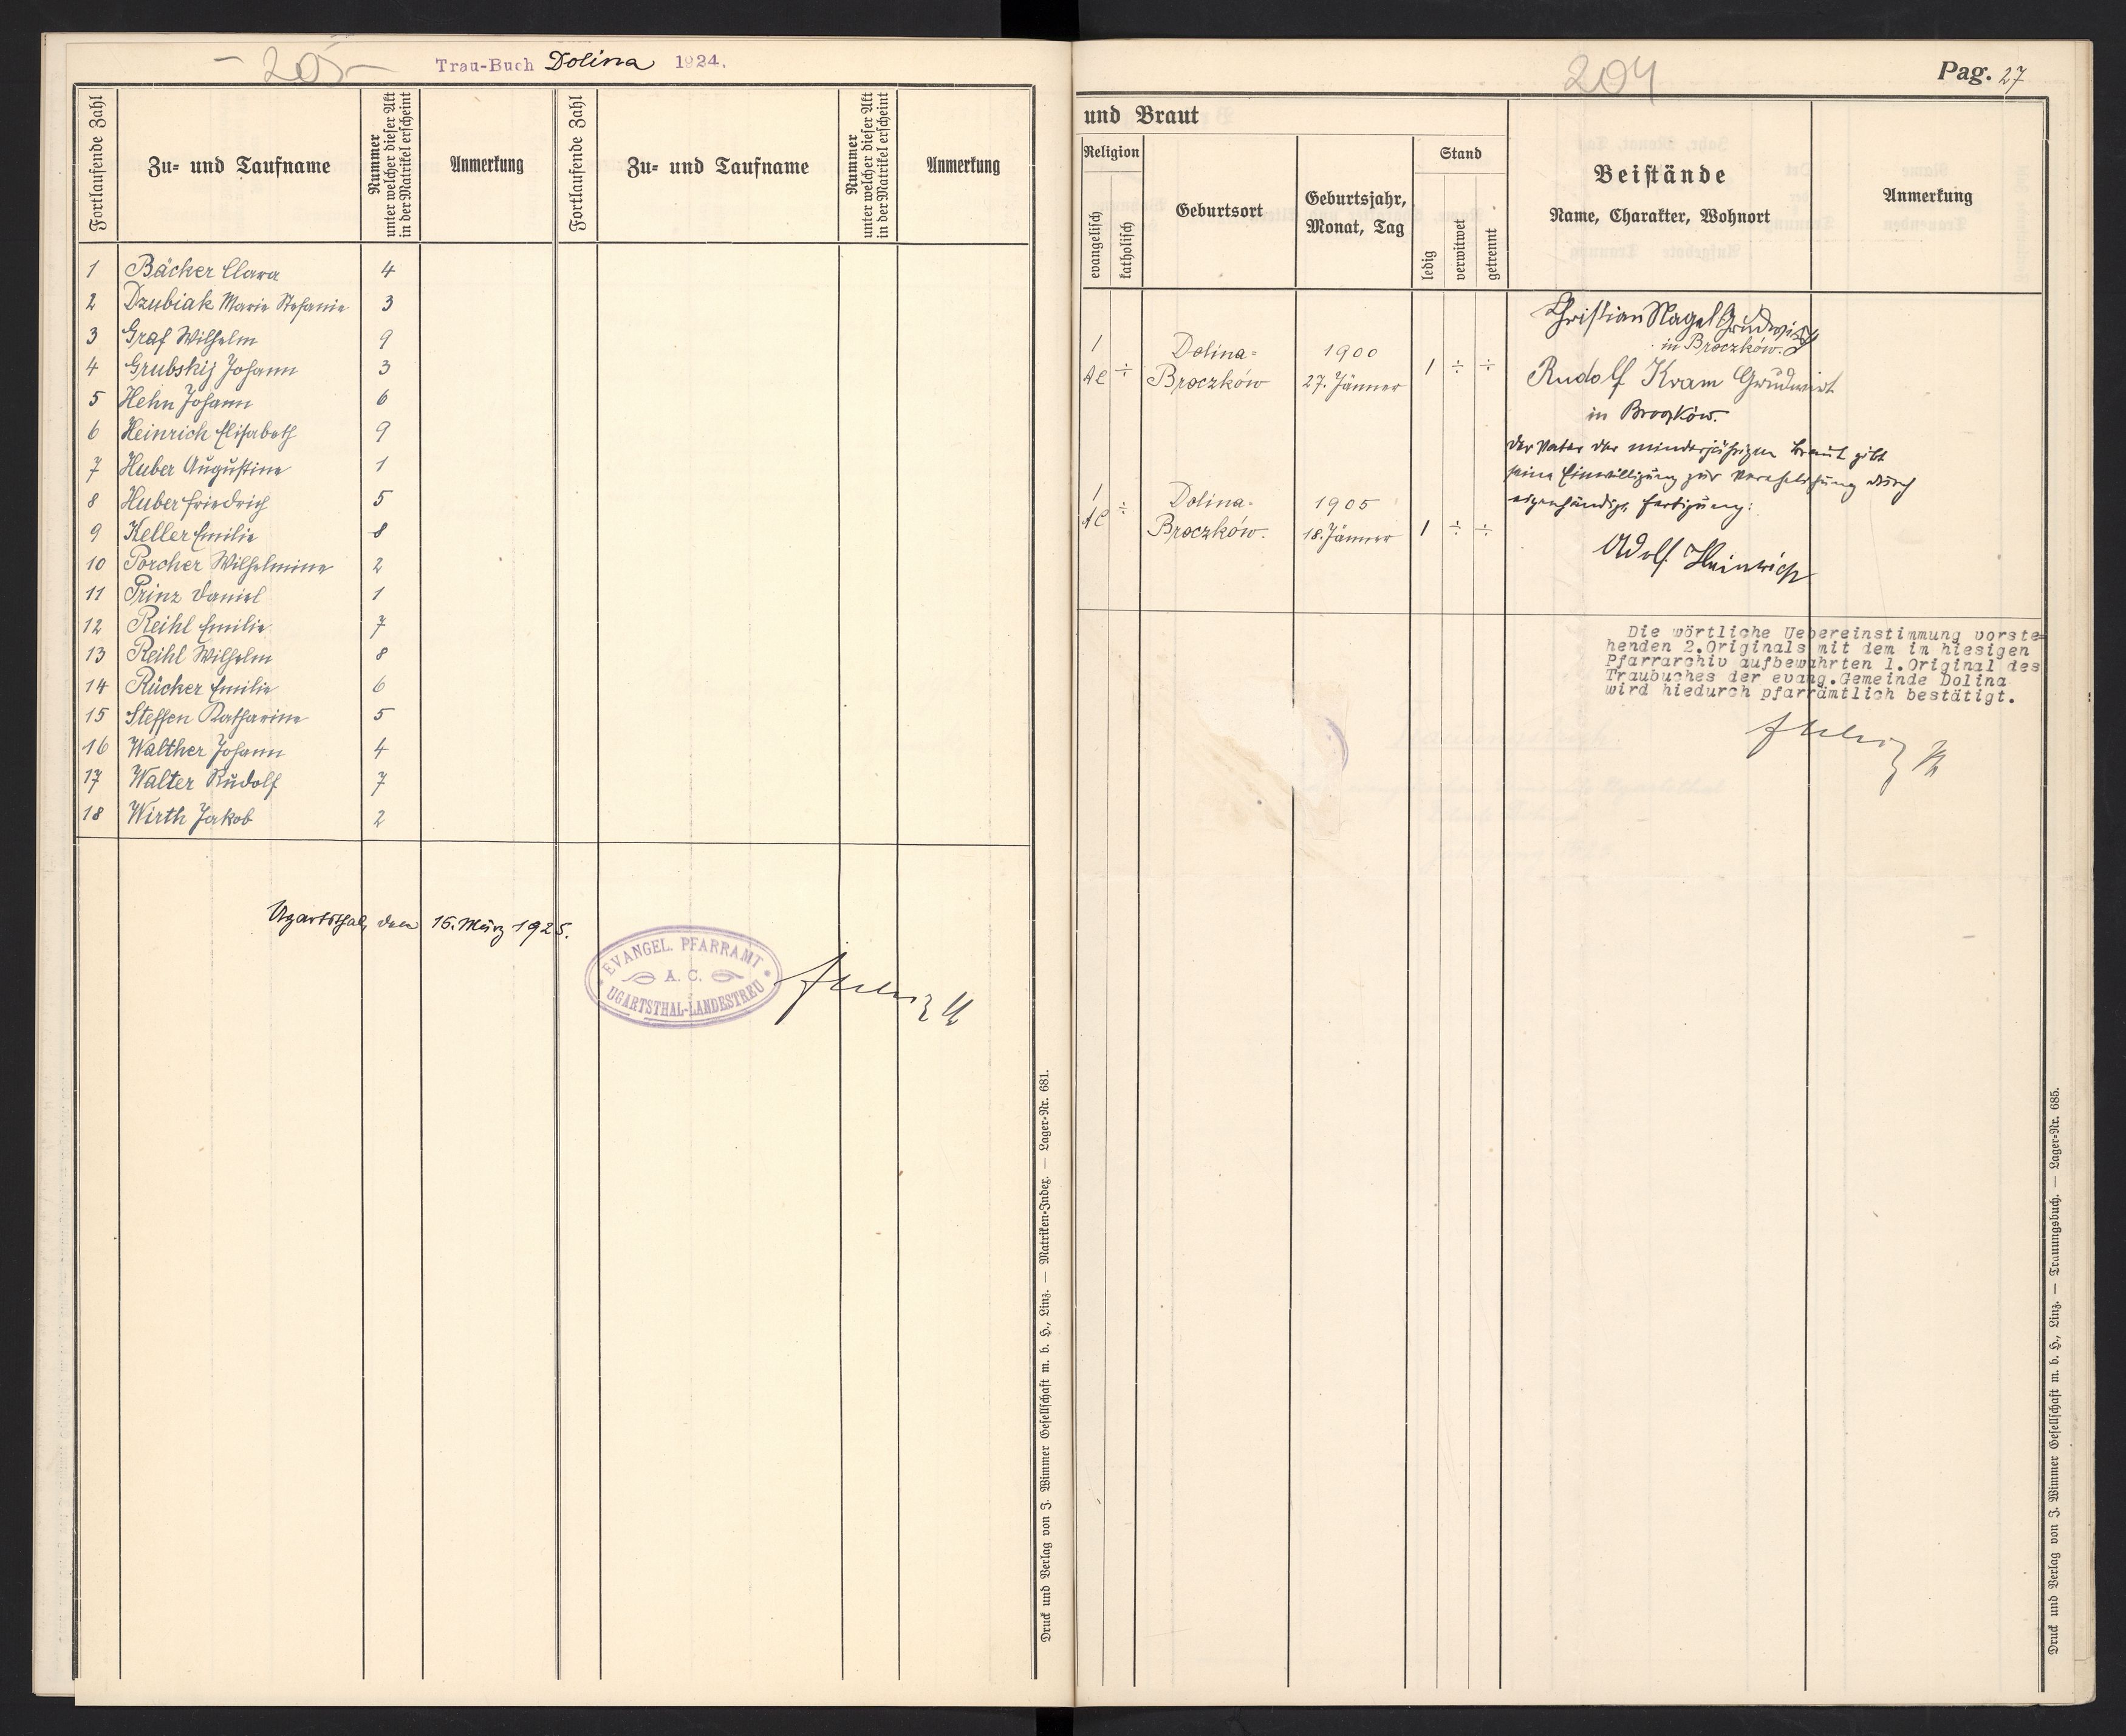 - 205 -
Trau-Buch Dolina 1924.
Fortlaufende Zahl
Zu- und Taufname
Nummer
unter welcher dieser Akt
in der Matrikel erscheint
Anmerkung
Fortlaufende Zahl
Zu- und Taufname
Nummer
unter welcher dieser Akt
in der Matrikel erscheint
Anmerkung
1 Bäcker Clara 4
2 Dzubiak Marie Stefanie 3
3 Graf Wilhelm 9
4 Grubskij Johann 3
5 Hehn Johann 6
6 Heinrich Elisabeth 9
7 Huber Augustine 1
8 Huber Friedrich 5
9 Keller Emilie 8
10 Porcher Wilhelmine 2
11 Prinz Daniel 1
12 Reihl Emilie 7
13 Reihl Wilhelm 8
14 Rücker Emilie 6
15 Steffen Katharine 5
16 Walther Johann 4
17 Walter Rudolf 7
18 Wirth Jakob 2
Ugartsthal, den 15. März 1925.
EVANGEL. PFARRAMT
A. C.
UGARTSTHAL-LANDESTREU
Druck und Verlag von J. Wimmer Gesellschaft m. b. H., Linz. — Matriken-Index. — Lager-Nr. 681.
204
Pag. 27
und Braut
Religion
evangelisch
katholisch
Geburtsort
Geburtsjahr,
Monat, Tag
Stand
ledig
verwitwet
getrennt
Beistände
Name, Charakter, Wohnort
Anmerkung
1
AC ÷
Dolina-
Broczków
1900
27. Jänner
1 ÷ ÷
Christian Nagel Grundwirt
in Broczków.
Rudolf Kram Grundwirt
in Broczków.
1
AC ÷
Dolina-
Broczków.
1905
18. Jänner
1 ÷ ÷
Der Vater der minderjährigen Braut gibt
seine Einwilligung zur Verehelichung durch
eigenhändige Fertigung:
Adolf Heinrich
Die wörtliche Uebereinstimmung vorste=
henden 2.Originals mit dem im hiesigen
Pfarrarchiv aufbewahrten 1.Original des
Traubuches der evang.Gemeinde Dolina
wird hiedurch pfarrämtlich bestätigt.
Druck und Verlag von J. Wimmer Gesellschaft m. b. H., Linz. — Trauungsbuch. — Lager-Nr. 685.